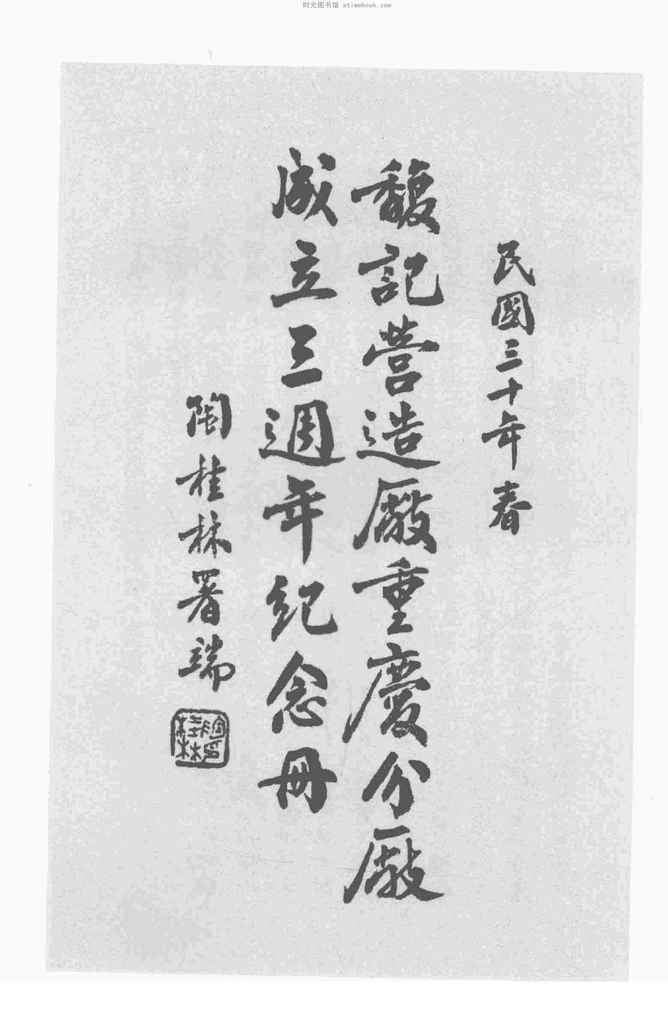 时光图书馆 atimebook.com
民國三十年春
馥記營造廠重慶分廠
成立三週年紀念冊
陶桂林署端